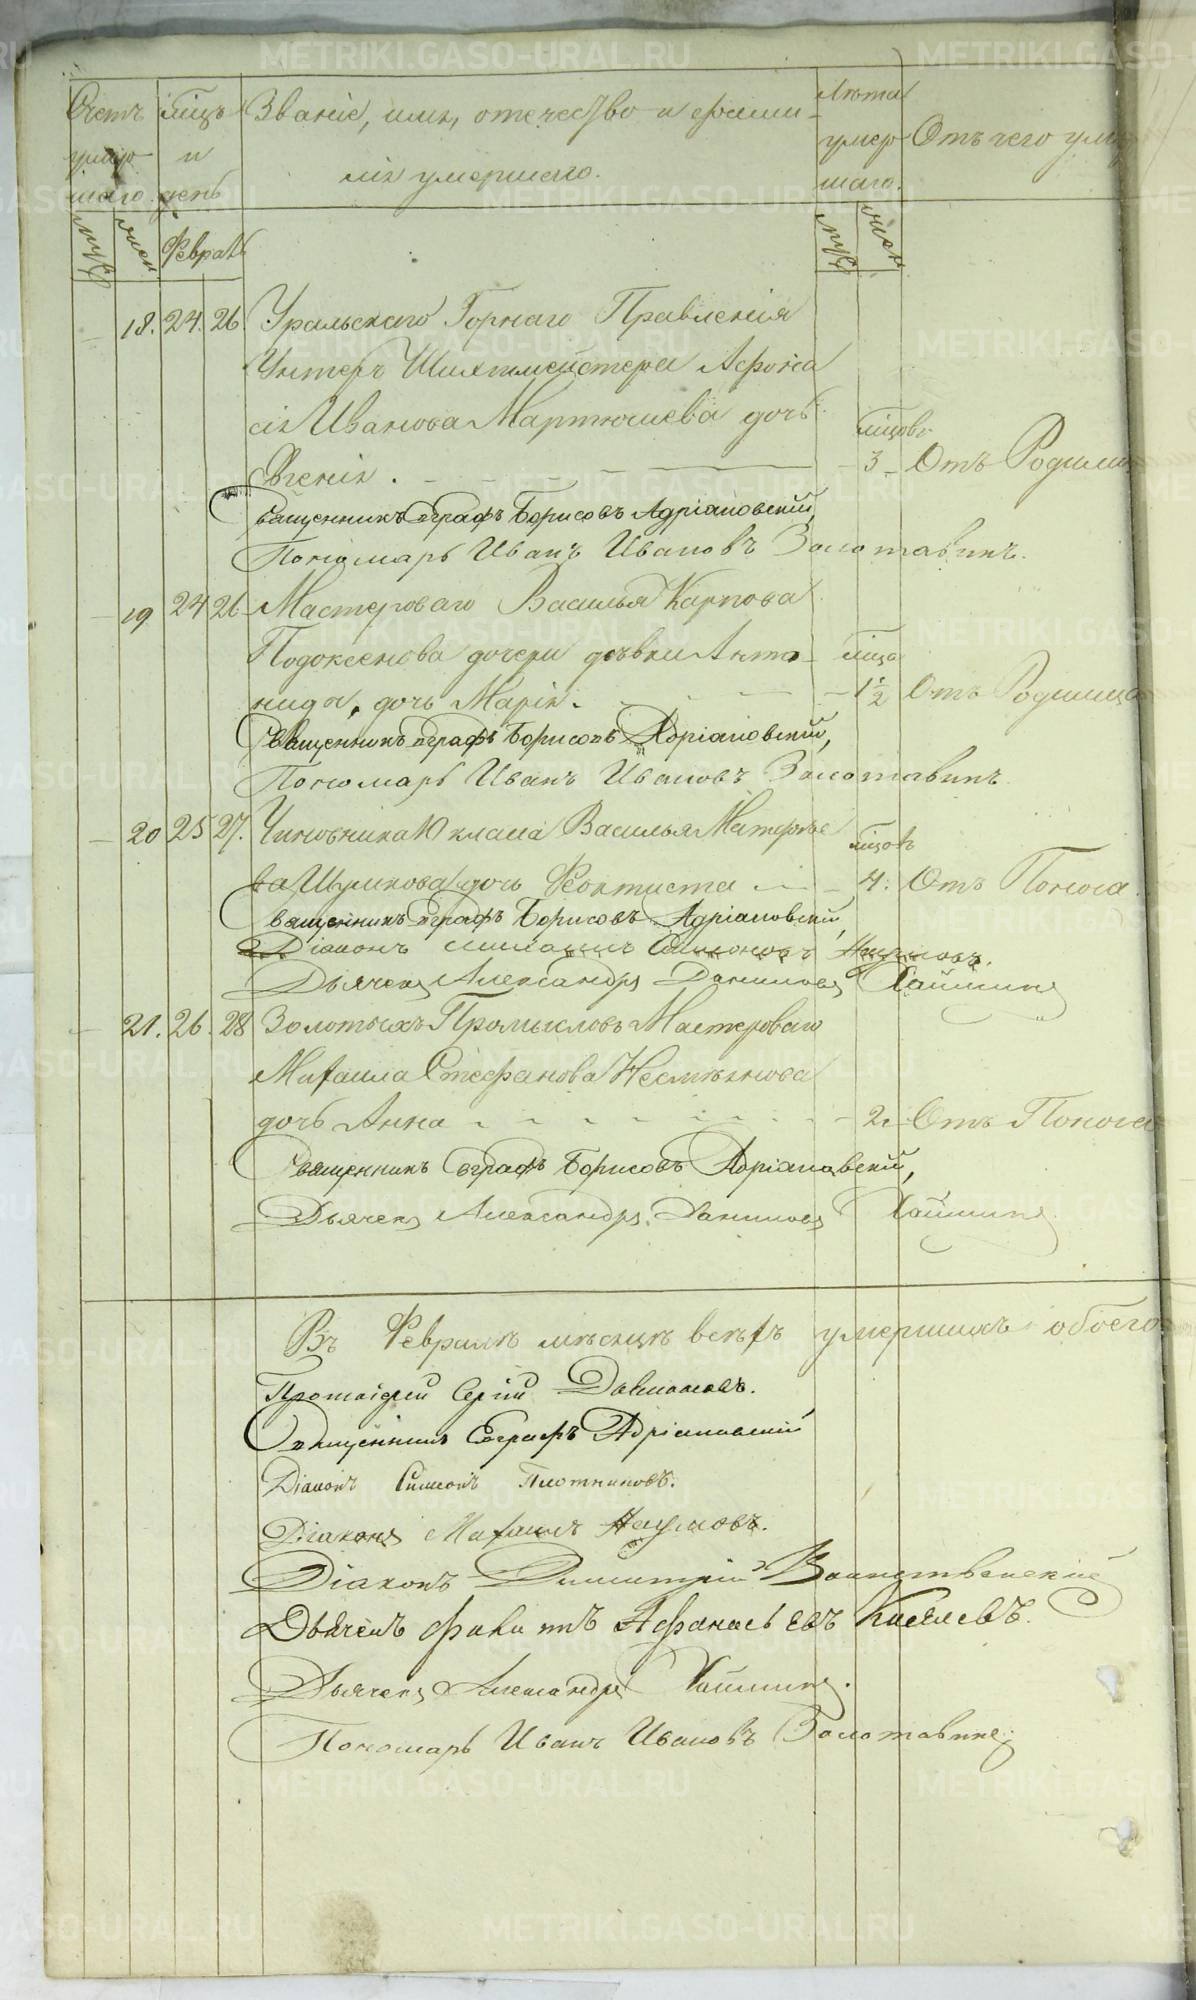 Счетъ мѣцъ Званіе, имя, отечество и фами-
умер и лія умершаго.
шаго. день
Лѣта
умер
шаго.
Отъ чего умер
муж. жен. Февраль
муж. жен.
18. 24. 26. Уральскаго Горнаго Правленія
Унтеръ Шихтмейстера Афона
сія Иванова Мартюшева дочь мѣцовъ
Евгенія. 3 Отъ Родими
Священникъ Еграфъ Борисовъ Адріановскій,
Пономарь Иванъ Ивановъ Золотавинъ.
19 24 26 Мастероваго Василья Карпова
Подоксенова дочери дѣвки Анто- мѣца
нида, дочь Марія. 1½ Отъ Родимца
Священникъ Еграфъ Борисовъ Адріановскій,
Пономарь Иванъ Ивановъ Золотавинъ
20 25 27. Чиновника 10 класа Василья Матвѣе мѣцовъ
ва Шумкова дочь Феоктиста 4. Отъ Поноса
Священникъ Еграфъ Борисовъ Адріановскій,
Діаконъ Наумовъ.
Дьячекъ Александръ Даниловъ
21. 26. 28 Золотыхъ Промысловъ Мастероваго
Михаила Стефанова Несмѣянова
дочь Анна 2. Отъ Поноса
Священникъ Еграфъ Борисовъ Адріановскій,
Дьячекъ Александръ Даниловъ
Въ Февралѣ мѣсяцѣ всѣхъ умершихъ обоего
Протоіерей Сергій
Священникъ Еграфъ Адріановскій
Діаконъ Симеонъ Плотниковъ.
Діаконъ Михаилъ Наумовъ.
Діаконъ Димитрій
Дьячекъ Афанасьевъ Киселевъ.
Дьячекъ Александръ
Пономарь Иванъ Ивановъ Золотавинъ
METRIKI.GASO-URAL.RU